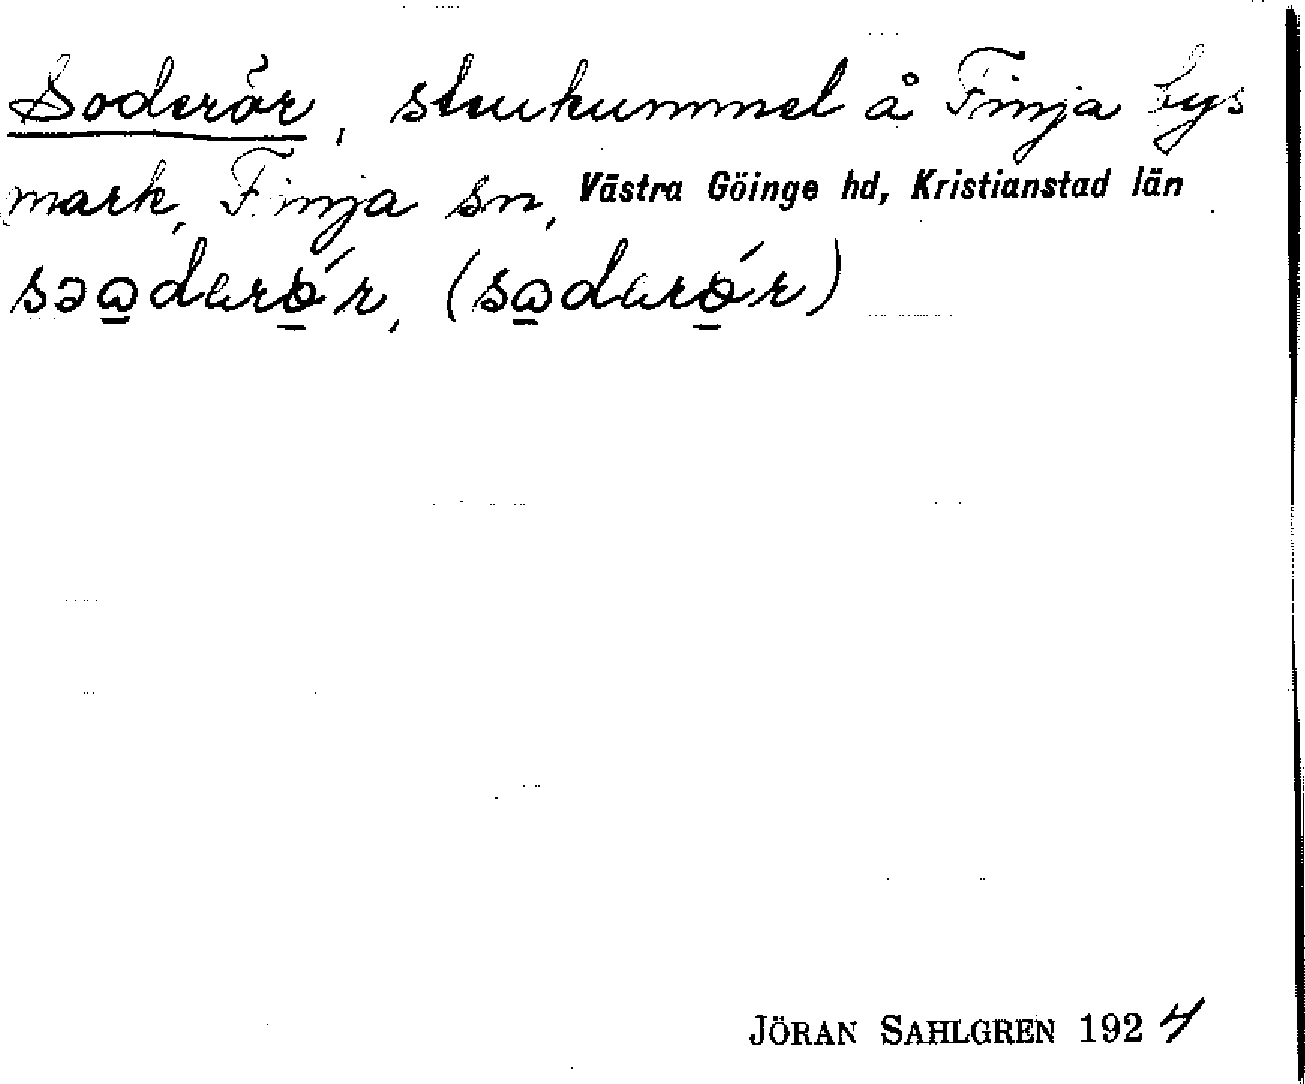 Soderör, stenkummel å Finja bys
mark, Finja sn, Västra Göinge hd, Kristianstad län
JÖRAN SAHLGREN 1924